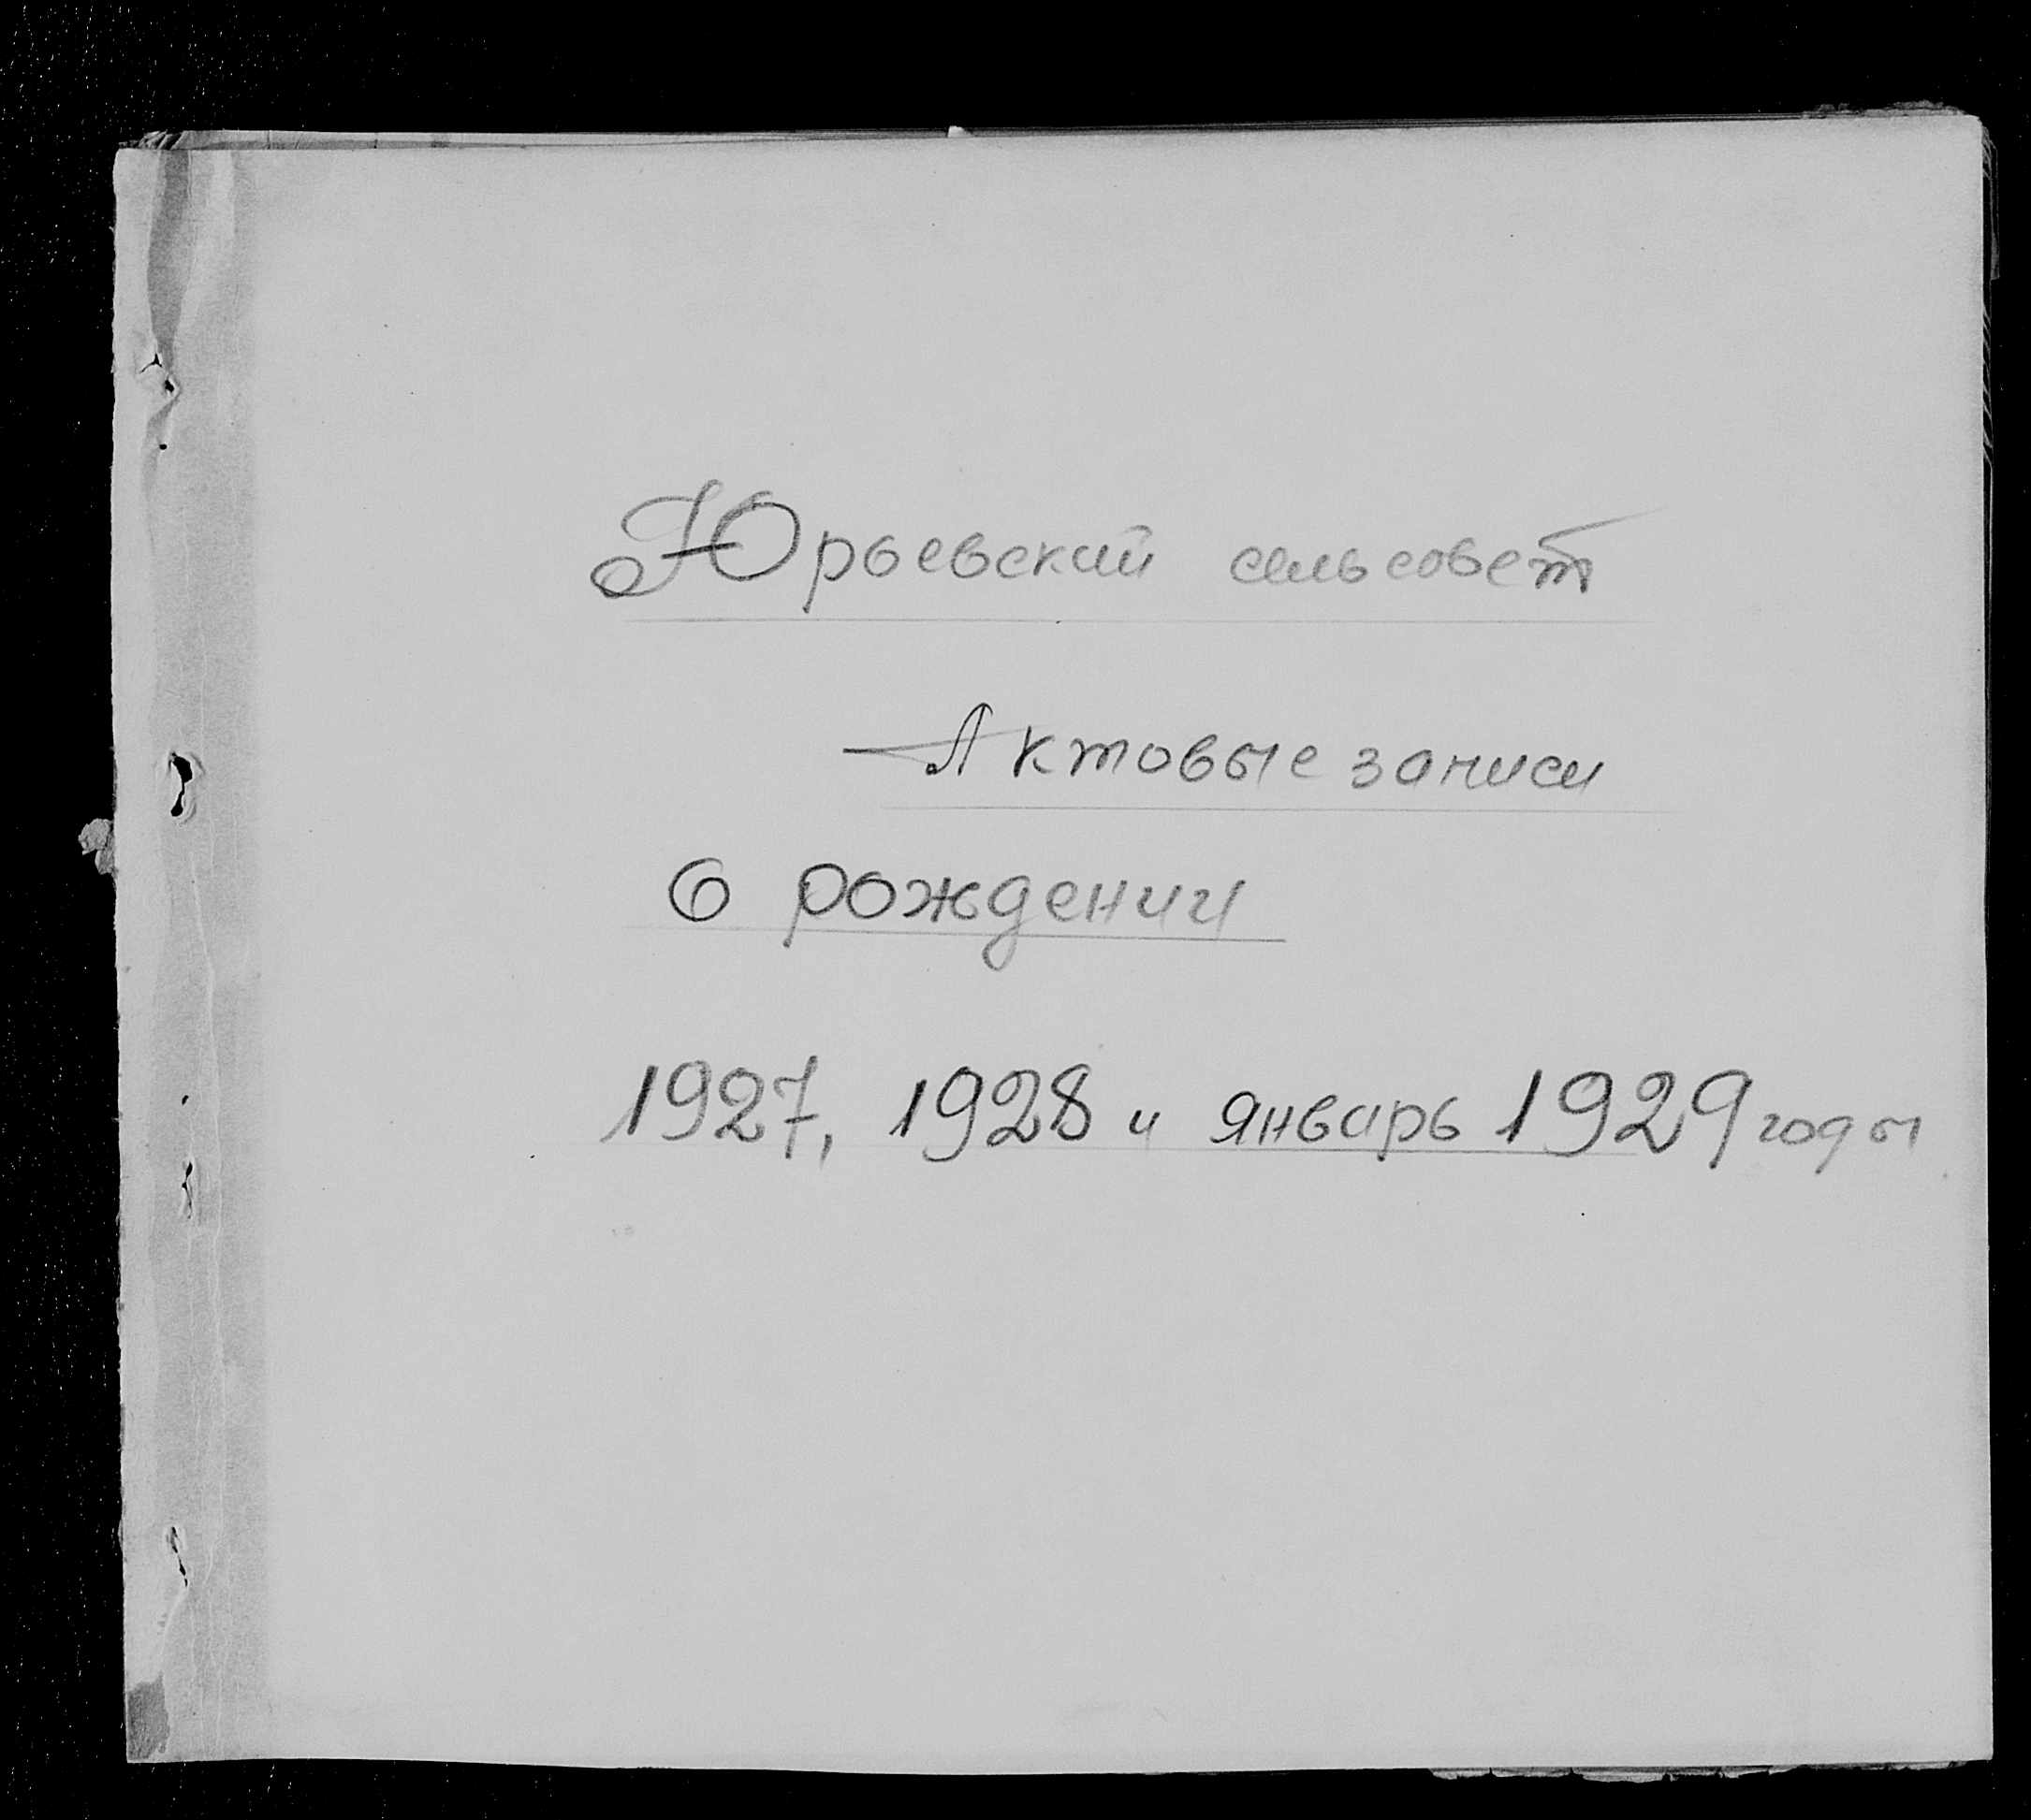 Юрьевский сельсовет
Актовые записи
о рождении
1927, 1928 и январь 1929 годы